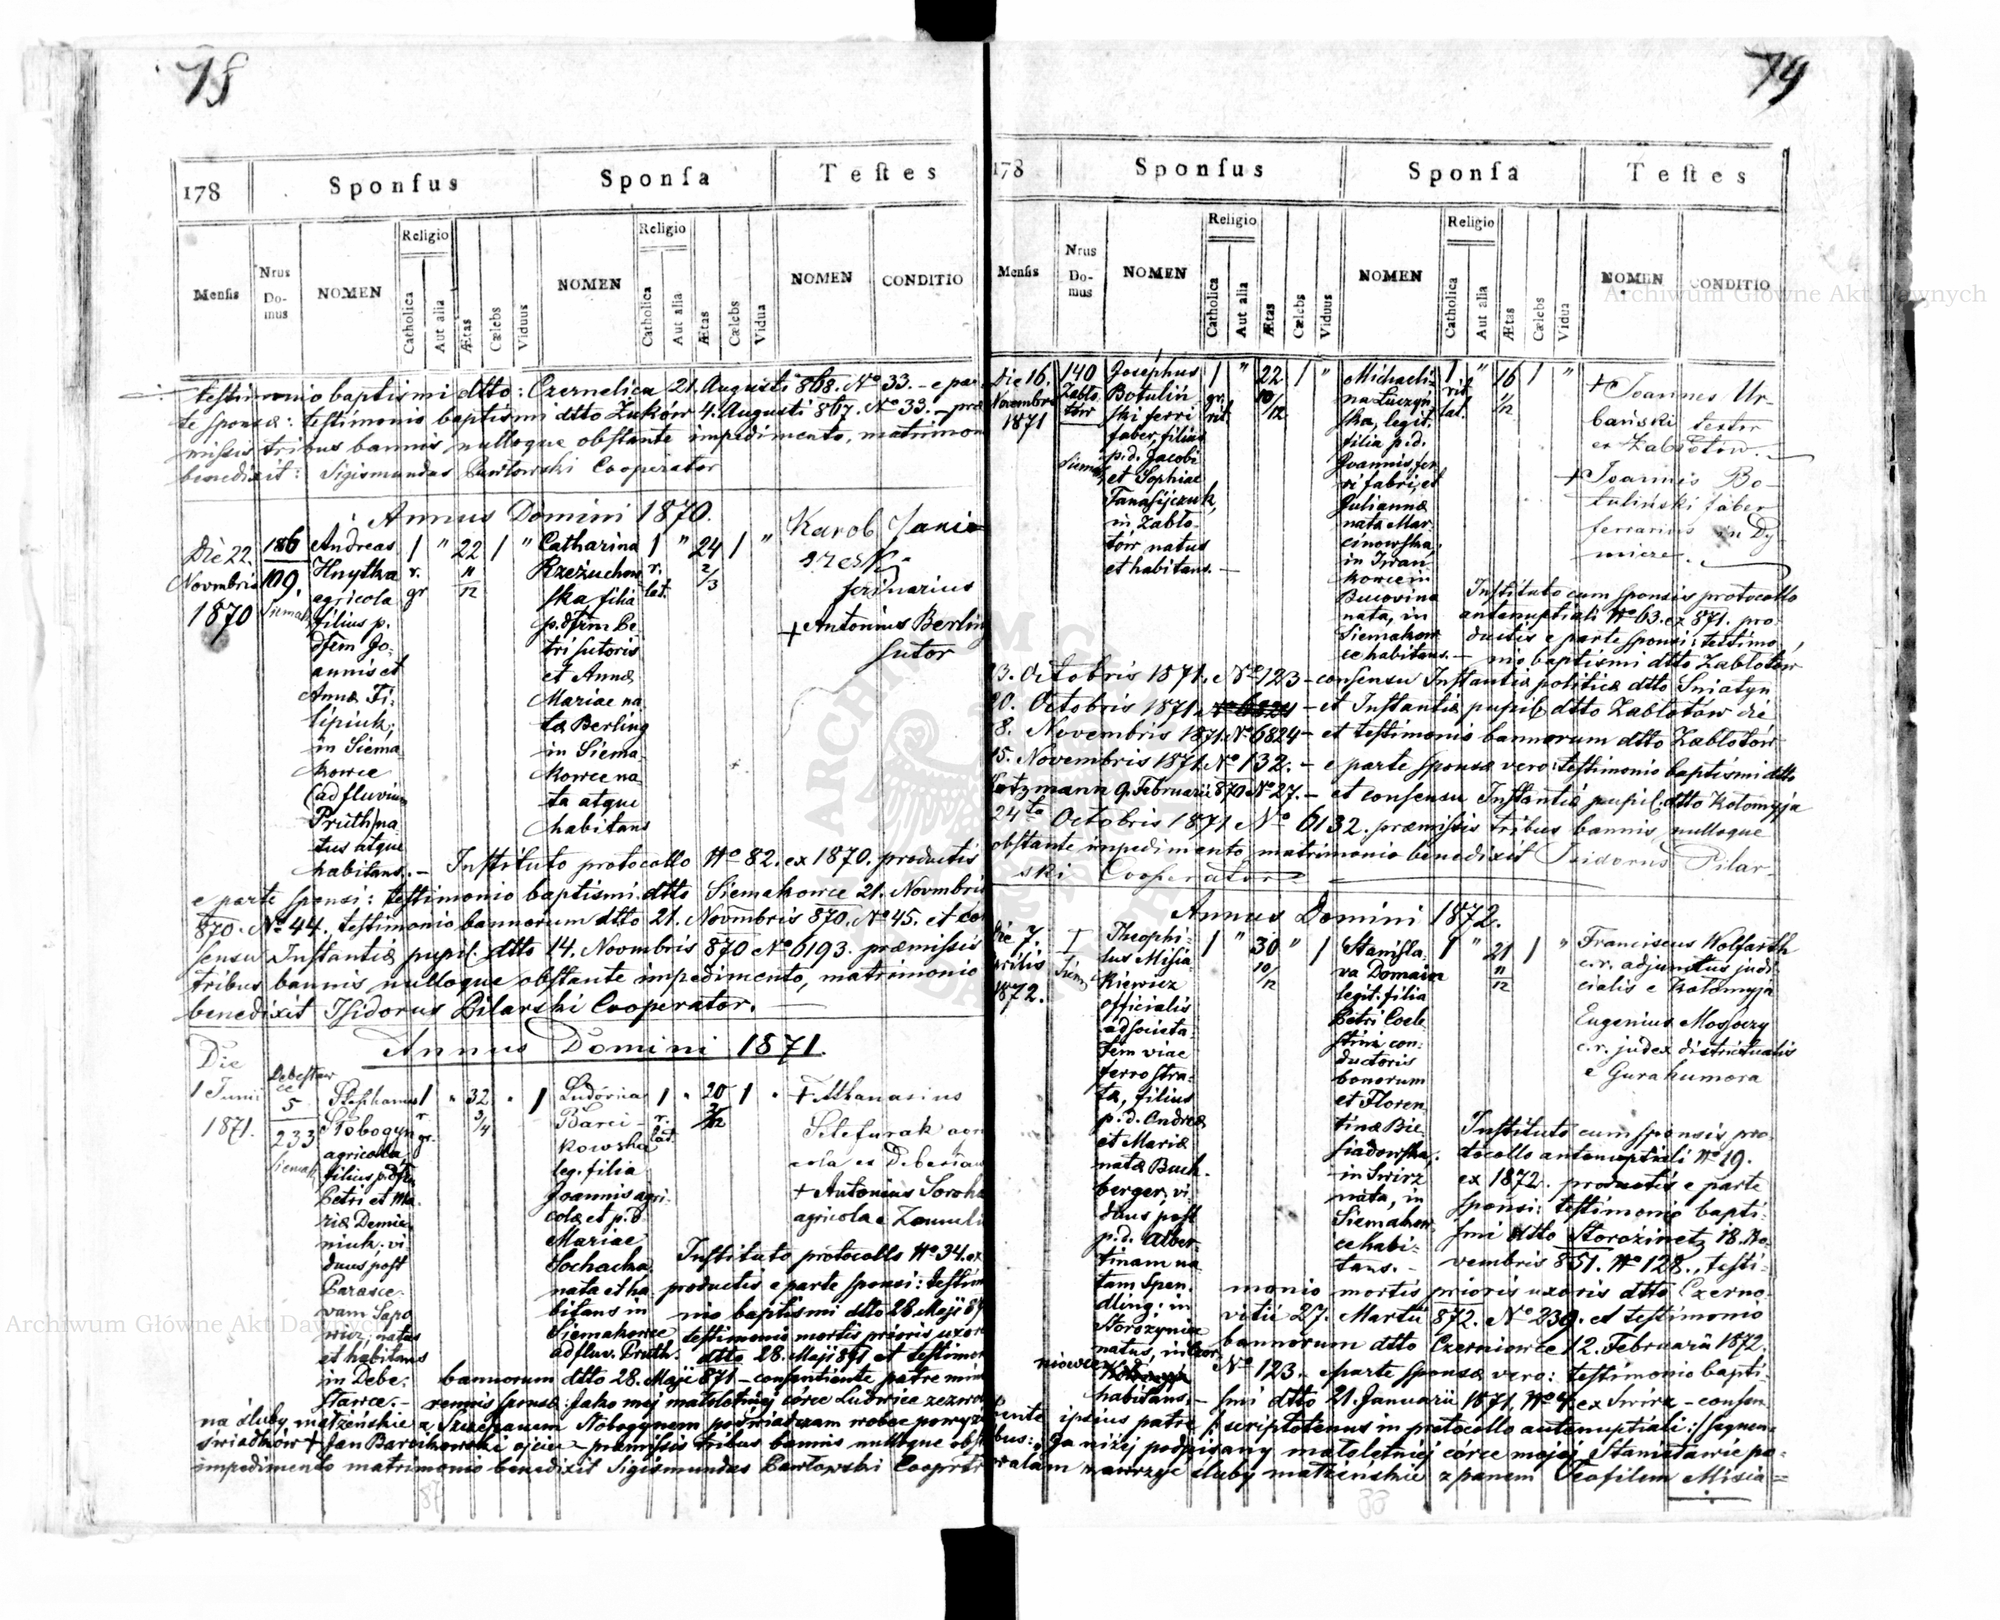 78
178
Sponſus
Sponſa
Teſtes
Menſis
Nrus Do- mus
NOMEN
Religio
Catholica
Aut alia
Ætas
Cælebs
Viduus
NOMEN
Religio
Catholica
Aut alia
Ætas
Cælebs
Vidua
NOMEN
CONDITIO
testimonio baptismi dtto: Czernelica 21. Augusti 868. No 33. – e par
te sponsæ: testimonio baptismi dtto Żuków 4. Augusti 867. No 33. – præ
missis tribus bannis, nulloque obstante impedimento, matrimon
benedixit: Sigismundus Pawłowski Cooperator
Annus Domini 1870.
Die 22.
Novmbris
1870
186
109.
Siemak
Andreas
Hnytka
agricola
filius p.
dfem Jo-
annis et
Annæ Fi-
lipiuk,
in Siema
kowce
(ad fluvium
Pruth) na
tus atque
habitans. –
1 " 22 1 "
r. 11
gr 12
Catharina
Rzeżuchow
ska filia
p. dfrm Pe
tri sutoris
et Annæ
Mariae na
tæ Berling
in Siema-
kowce na
ta atque
habitans
1 " 24 1 "
r. 2
lat. 3
Karob Janio
ferinarius
+ Antonius Berling
sutor
Instituto protocollo No 82. ex 1870. productis
e parte sponsi: testimonio baptismi dtto Siemakowce 21. Novmbris
870. No 44. testimonio bannorum dtto 21. Novmbris 870. No 45. et con
sensu Instantiæ pupil: dtto 14. Novmbris 870 No 6193. præmissis
tribus bannis nulloque obstante impedimento, matrimonio
benedixit Isidorus Pilarski Cooperator.
Annus Domini 1871.
Die
1 Junii
1871.
Debesław
ce
5
233
Siemak
Stephanus
Nobogyn
agricola
filius pdfti
Petri et Ma-
riæ Demia
niuk. vi-
duus post
Parasce-
vam Sapo
wicz, natus
et habitans
in Debe-
sławce. –
1 " 32 " 1
r. 3
gr. 4
Ludovica
Barci-
kowska
leg. filia
Joannis agri-
colæ et p. d
Mariae
Sochacka,
nata et ha
bitans in
Siemakowce
ad fluv. Pruth.
1 " 20 1 "
r.
lat.
+ Athanasius
+ Antonius Soroka
agricola e
Instituto protocollo No 34. ex
productis e parte sponsi: testim
nio baptismi dtto 28. Maji 87
testimonio mortis prioris uxor
dtto 28. Maji 871 et testimon
bannorum dtto 28. Maji 871 – consentiente patre min
rennis sponsæ: Jako mej małoletniej córce Ludwice zezwa
na śluby małżeńskie z Szczepanem Nobogynem poświadczam wobec powyż
świadków + Jan Barcikowski ojciec – præmissis tribus bannis nulloque obst
impedimento matrimonio benedixit Sigismundus Pawłowski Cooprtr
87
79
178
Sponſus
Sponſa
Teſtes
Menſis
Nrus Do- mus
NOMEN
Religio
Catholica
Aut alia
Ætas
Cælebs
Viduus
NOMEN
Religio
Catholica
Aut alia
Ætas
Cælebs
Vidua
NOMEN
CONDITIO
Die 16.
Novembris
1871
140
Zabło
tów
Siemak
Josephus
Botulin
ski ferri
faber, filius
p. d. Jacobi
et Sophiæ
Tanasijczuk,
in Zabło-
tów natus
et habitans. –
1 " 22 1 "
gr. 10
rit. 12
Michaeli-
na Łuczyń
ska, legit.
filia p. d.
Joannis, fer
ri fabri, et
Juliannæ
natæ Mar
cinowska,
in Iwan
kowce in
Bucovina
nata, in
Siemakow
ce habitans. –
1 " 16 1 "
rit. 1
lat. 12
+ Joannes Ur-
bański textor
ex Zabłotów. –
+ Joannis Bo-
tuliński faber
ferrarius in Dy-
micze. –
Instituto cum sponsis protocollo
antenuptiali No 63. ex 871. pro-
ductis e parte sponsi: testimo-
nio baptismi dtto Zabłotów
13. Octobris 1871. No 123 – consensu Instantiæ politicæ dtto Śniatyn
20. Octobris 1871. – et Instantiæ pupil: dtto Zabłotów die
8. Novembris 1871. No 6824 – et testimonio bannorum dtto Zabłotów
15. Novembris 1871. No 132. – e parte sponsæ vero: testimonio baptismi dtto
Cotzmann 9. Februarii 870 No 27. – et consensu Instantiæ pupil: dtto Kołomyja
24to Octobris 1871 No 6132. præmissis tribus bannis, nulloque
obstante impedimento matrimonio benedixit Isidorus Pilar-
ski Cooperator
Annus Domini 1872.
Die 7.
Aprilis
1872.
1
Siem
Theophi-
lus Misia-
kiewicz
officialis
ad societa-
tem viae
ferro stra-
tæ, filius
p. d. Andreæ
et Mariæ
natæ Buch-
berger, vi-
duus post
p. d. Alber-
tinam na-
tam Spen-
dling: in
Storozynice
natus, in Czer-
niowce
habitans. –
1 " 30 " 1
10
12
Stanisła-
va Domain
legit. filia
Petri Coele
stini con-
ductoris
bonorum
et Floren
tinæ Bie-
siadowska,
in Swirz
nata, in
Siemakow
ce habi-
tans. –
1 " 21 1 "
11
12
Franciscus Wolfarth
c. r. adjunctus judi-
cialis e Kołomyja
Eugenius Mosoczy
c. r. judex districtualis
e Gurahumora
Instituto cum sponsis pro-
tocollo antenuptiali No 19.
ex 1872. productis e parte
sponsi: testimonio bapti-
smi dtto Storożinetz 18. No-
vembris 851. No 128., testi-
monio mortis prioris uxoris dtto Czerno-
vitii 27. Martii 872. No 239. et testimonio
bannorum dtto Czerniowce 12. Februarii 1872.
No 123. – e parte sponsæ vero: testimonio bapti-
smi dtto 21. Januarii 1871. No 4. ex Swirz – consen
iente ipsius patre (: scriptotenus in protocollo antenuptiali :) sequen-
tibus: „Ja niżej podpisany małoletniej córce mojej Stanisławie po-
zwalam zawrzyć śluby małżeńskie z panem Teofilem Misia=
88
Archiwum Główne Akt Dawnych
Archiwum Główne Akt Dawnych